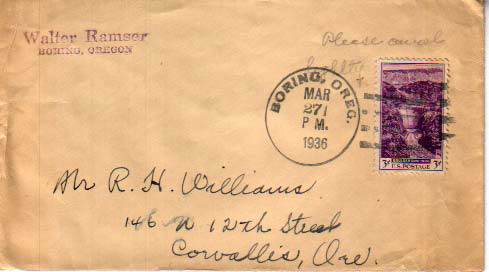 Walter Ramser
BORING, OREGON
Please cancel
BORING, OREG.
MAR
271
P M.
1936
3¢ 3¢
U.S. POSTAGE
Mr R. H. Williams
146 N 12th Street
Corvallis, Ore.